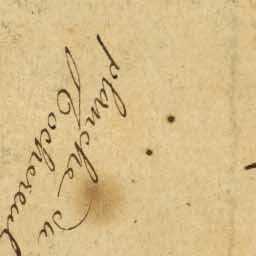 planche du
Cochereul